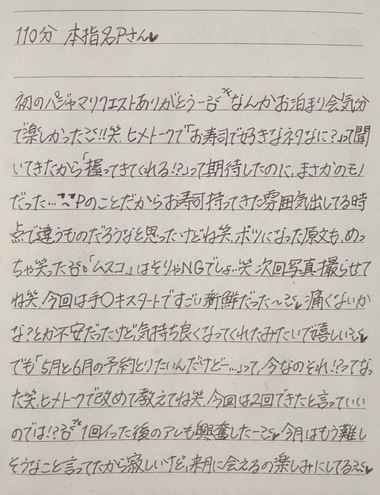 110分 本指名Pさん♥
初のパジャマリクエストありがとう なんかお泊まり会気分
で楽しかった!!笑 ヒメトークで「お寿司で好きなネタなに?」って聞
いてきたから「握ってきてくれる!?」って期待したのに、まさかのモノ
だった… Pのことだからお寿司持ってきた雰囲気出してる時
点で違うものだろうなと思ったけどね笑 ボツになった原文も、めっ
ちゃ笑った 「ムスコ」はそりゃNGでしょ…笑 次回写真撮らせて
ね笑 今回は手〇キスタートですごい新鮮だった〜 痛くないか
な?とか不安だったけど気持ち良くなってくれたみたいで嬉しい
でも「5月と6月の予約とりたいんだけどー…」って、今なのそれ!?ってなっ
た笑 ヒメトークで改めて教えてね笑 今回は2回できたと言っていい
のでは!? 1回イった後のアレも興奮したー 今月はもう難し
そうなこと言ってたから寂しいけど、来月に会えるの楽しみにしてる